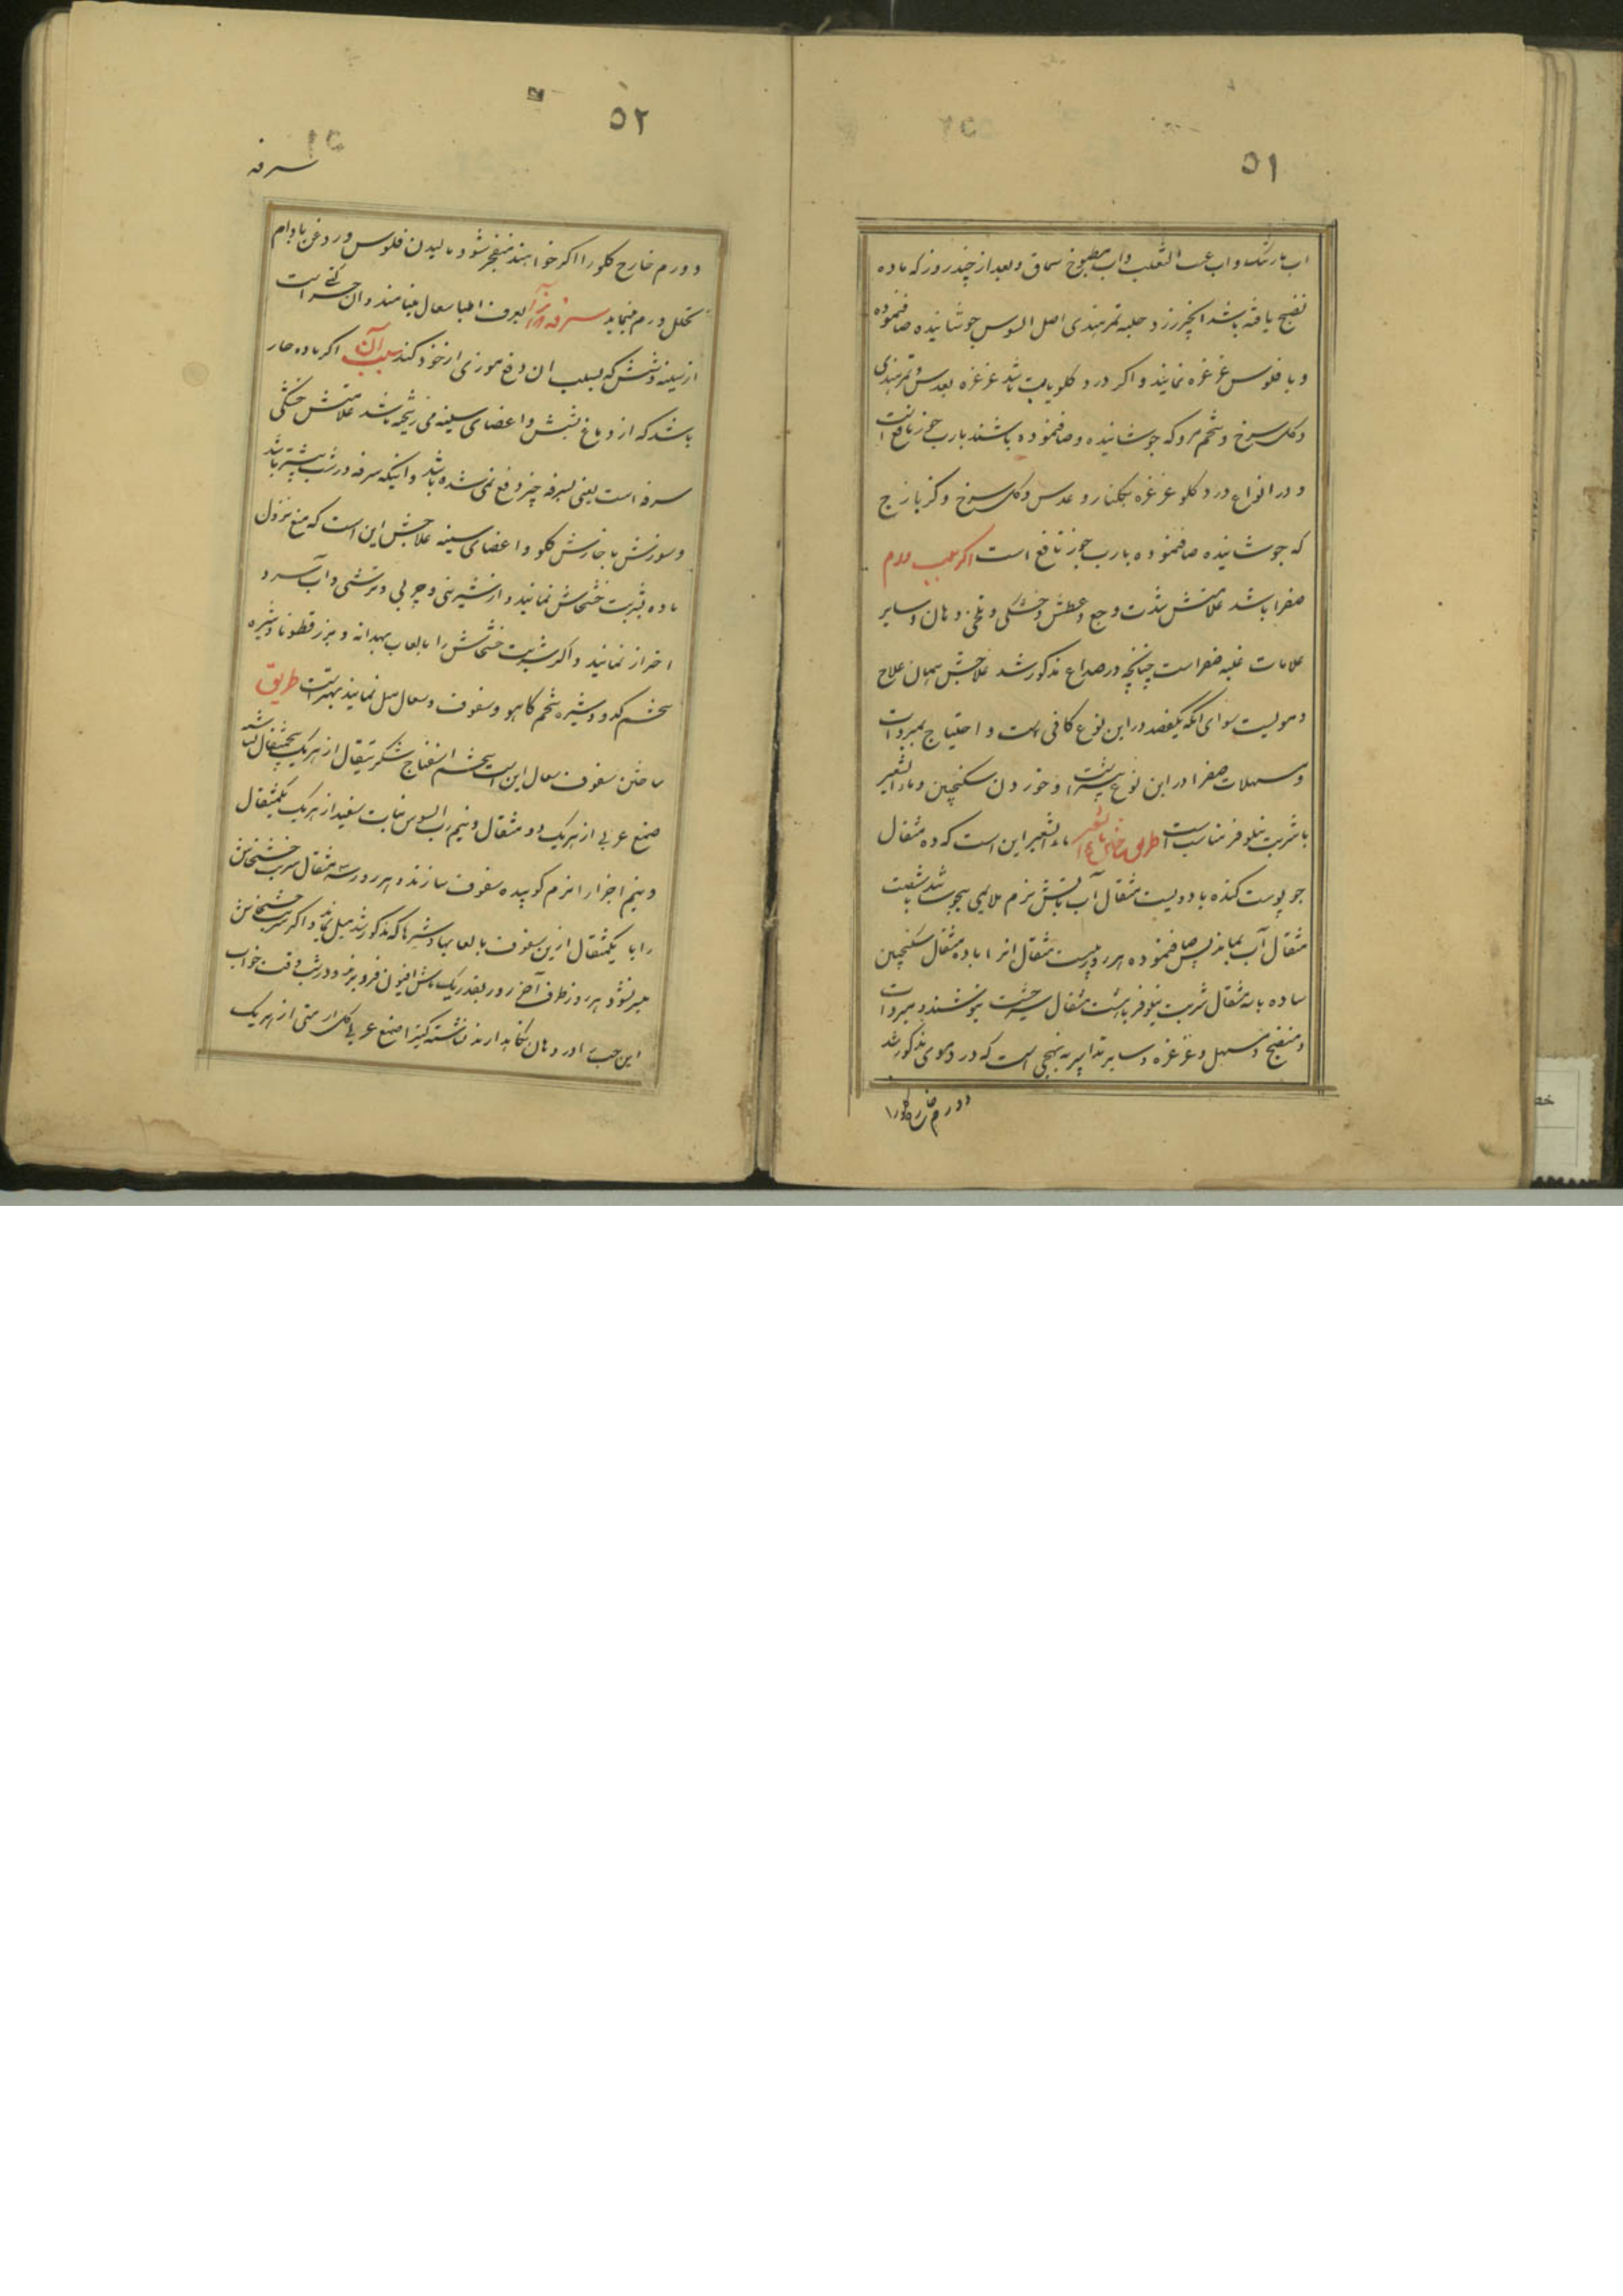 ۵۱
اب بارتنک و اب عنب الثعلب و اب مطبوخ سماق و بعد از چند روز که ماده
نضج یافته باشد انجیر زرد حلبه تمرهندی اصل السوس جوشانیده صافنموده
و با فلوس غرغره نمایند و اکر درد کلو باشد غرغره بعدس و تمرهندی
و کل سرخ و تخم مرو که جوشانیده و صافنموده باشند با رب جوز نافع است
و در انواع درد کلو غرغره بکلنار و عدس و کل سرخ و کزمازج
که جوشانیده صافنموده با رب جوز نافع است اکر سبب ورم
صفرا باشد علامتش شدت وجع و عطش و خشکی و تلخی دهان و سایر
علامات غلبه صفرا است چنانچه در صداع مذکور شد علاجش همان علاج
دمویست سوای انکه یکفصد در این نوع کافی است و احتیاج بمبردات
و مسهلات صفرا در این نوع بیشتر است و خوردن سکنجبین و ماء الشعیر
با شربت نیلوفر مناسب است طریق ساختن ماء الشعیر ماء الشعیر این است که ده مثقال
جو پوست کنده با دویست مثقال آب باتش نرم ملایمی بجوشد تا شصت
مثقال آب بماند پس صافنموده هر روز بیست مثقال انرا با ده مثقال سکنجبین
ساده با سه مثقال شربت نیلوفر با هشت مثقال شیرخشت بنوشند و مبردات
و منضج و مسهل و غرغره و سایر تدابیر به نهجی است که در دموی مذکور شد
و ورم خارج کلو را
۵۲
سرفه
و ورم خارج کلو را اکر خواهند منفجر شود مالیدن فلوس و روغن بادام
تحلل ورم مینماید سرفه و انرا بعرف اطبا سعال مینامند و ان حرکتی است
از سینه و شش که بسبب ان دفع موذی از خود کند سبب آن اکر ماده حار
باشد که از دماغ بشش و اعضای سینه می ریخته باشد علامتش خشکی
سرفه است یعنی بسرفه چیز دفع نمی شده باشد و اینکه سرفه در شب بیشتر باشد
و سوزش با خارش کلو و اعضای سینه علاجش این است که منع نزول
ماده بشربت خشخاش نمایند و از شیرینی و چربی و ترشی و آب سرد
احتراز نمایند و اکر شربت خشخاش را با لعاب بهدانه و بزرقطونا و شیره
تخم کدو و شیره تخم کاهو و سفوف سعال میل نمایند بهتر است طریق
ساختن سفوف سعال این است تخم اسفناج شکر تیغال از هریک پنجمثقال نشاسته
صمغ عربی از هریک دو مثقال و نیم رب السوس نبات سفید از هریک یکمثقال
و نیم اجزا را نرم کوبیده سفوف سازند و هر روز سه مثقال شربت خشخاش
را با یکمثقال ازین سفوف با لعابها و شیرها که مذکور شد میل نمایند و اکر شربت خشخاش
میسر نشود هر روز طرف آخر روز بقدر یک ماش افیون فرو برند و در شب وقت خواب
این حب را در دهان نکاهدارند نشاسته کتیرا صمغ عربی کل ارمنی از هریک